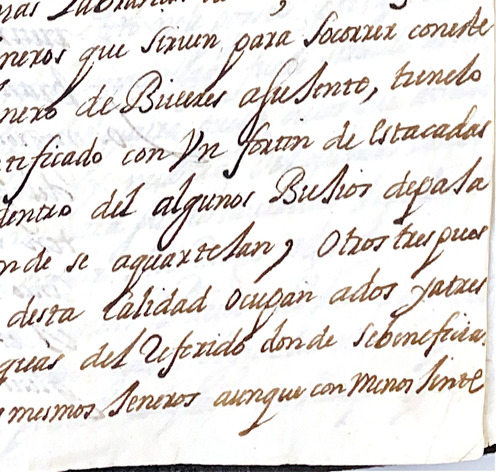 neros que siruen para socorrer coneste
nero de Biueres asusento, tienelo
tificado con Vn fortin de estacadas
dentro del algunos Buhios depaja
nde se aquartelan, Otros tres pues
desta Calidad ocupan ados yatres
guas del Referido donde sebenefician
mesmos Jeneros aunque con menos Jente